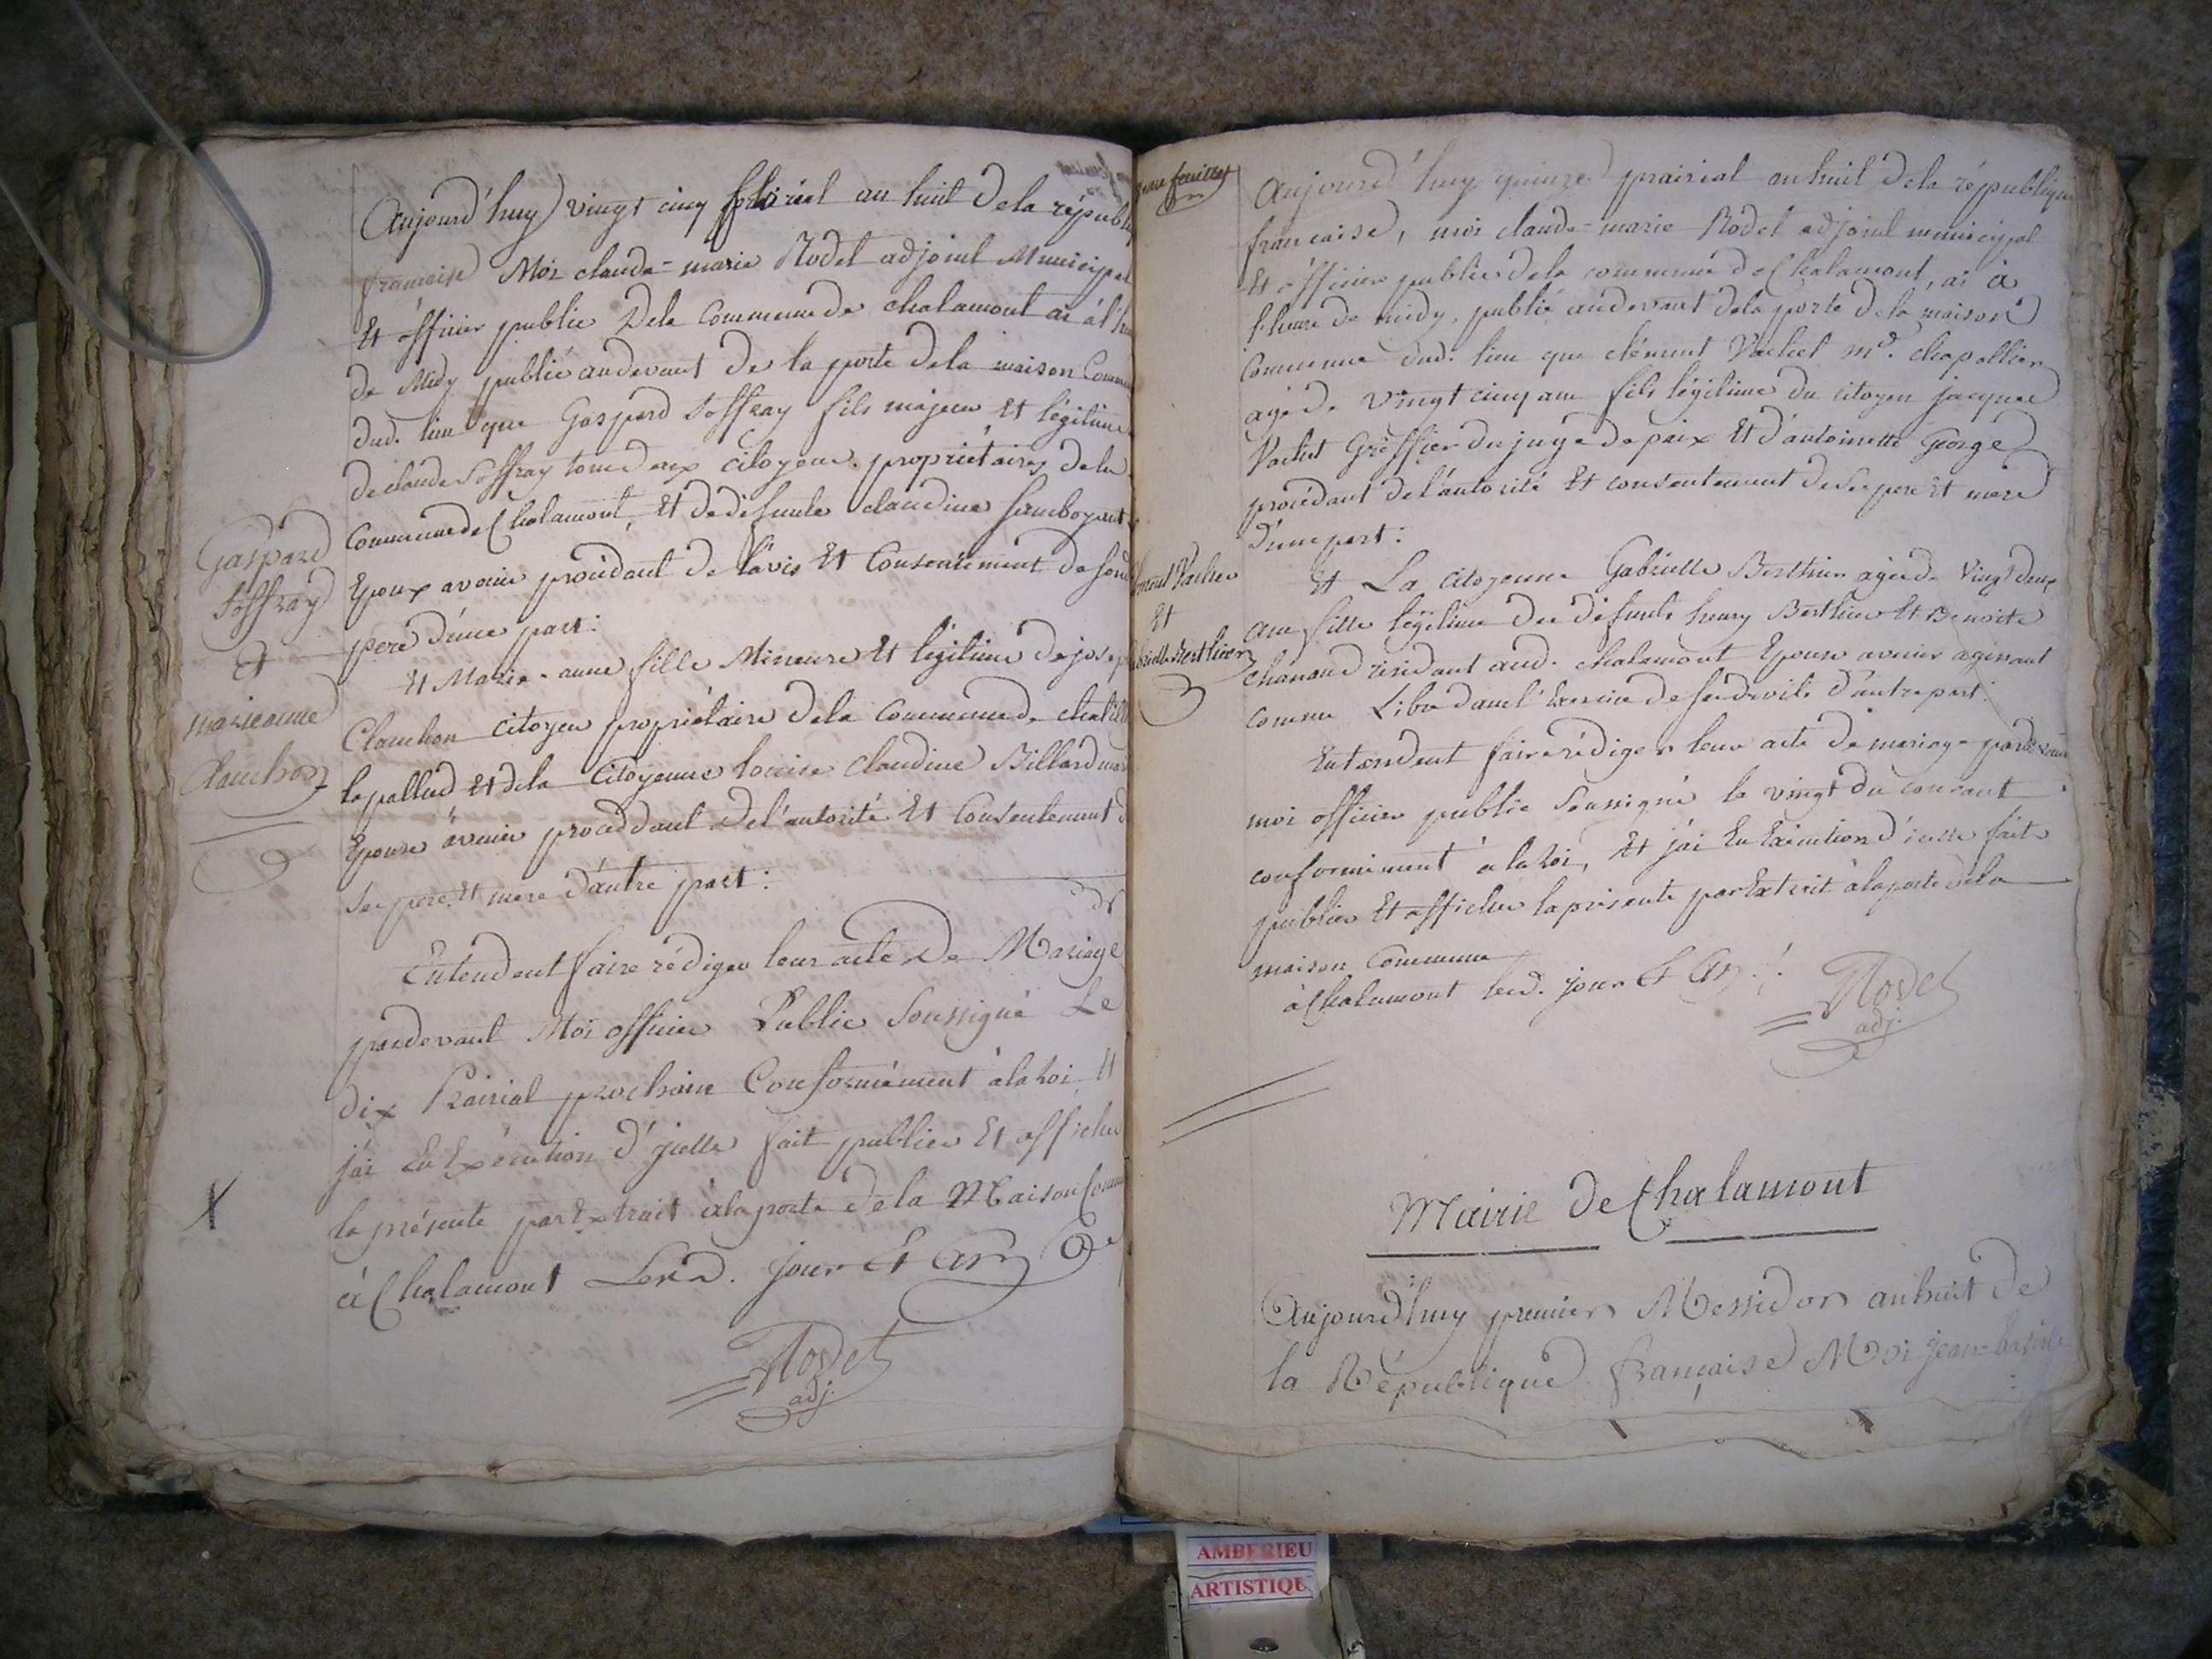 Aujourd'huy vingt cinq floréal an huit de la républ
francaise Moi claude-marie Rodet adjoint Municipal
Et officier public De la Commune de chalamont ai à l'h
de Midy publié audevant de la porte de la maison Commu
dud. lieu que Gaspard Joffray fils majeur Et légitime
de claude Joffray tous deux citoyens propriétaires de la
Commune de Chalamont, Et de défunte claudine
Epoux avenir procédant de l'avis Et Consentement de son
pere d'une part:
Et Marie-anne fille Mineure Et légitime de josep
Clauchon citoyen propriétaire de la Commune de chatill
la pallud Et de la Citoyenne louise Claudine Billard
Epouse àvenir proceddant de l'autorité Et Consentement d
ses pere Et mere d'autre part:
Entendent faire rédiger leur acte de Mariage
pardevant Moi officier Public Soussigné Le
dix Prairial prochain Conformément à la Loi Et
j'ai En Exécution d'icelle fait publier Et afficher
la présente par Extrait à la porte de la Maison Comm
à Chalamont Lesd. jour Et An
Rodet
adj.
Gaspard
Joffray
Et
marieanne
Clauchon
feuillet
Aujourd'huy quinze prairial an huit de la républiqu
francaise, moi claude-marie Rodet adjoint municipal
Et officier public de la commune de Chalamont, ai à
l'heure de midy, publié audevant de la porte de la maison
Commune dud. lieu que clément Vachet md. chapellier
agé de vingt cinq ans fils légitime du citoyen jacques
Vachet Greffier du juge de paix Et d'antoinette George
procédant de l'autorité Et consentement de ses pere Et mere
d'une part:
Et La citoyenne Gabrielle Berthier agée de vingt deux
ans fille légitime des défunts henry Berthier Et Benoite
résidant aud. chalamont Epouse avenir agissant
comme Libre dans l'Exercice de ses droits d'autre part:
Entendent faire rédiger leur acte de mariage pardevant
moi officier public Soussigné le vingt du courant
conformément à la Loi, Et j'ai En Exécution d'icelle fait
publier Et afficher la présente par Extrait à la porte de la
maison Commune
à Chalamont lesd. jour Et An.
Rodet
adj.
ement Vachet
Et
brielle Berthier
Mairie de Chalamont
Aujourd'huy premier Messidor an huit de
la République française Moi jean-
AMBERIEU
ARTISTIQU